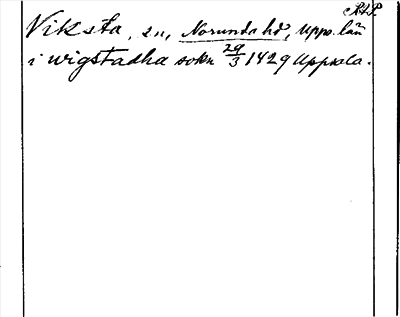 RAP.
Viksta, sn, Norunda hd, Upps. län
i wigstadha sokn 29/3 1429 Uppsala.